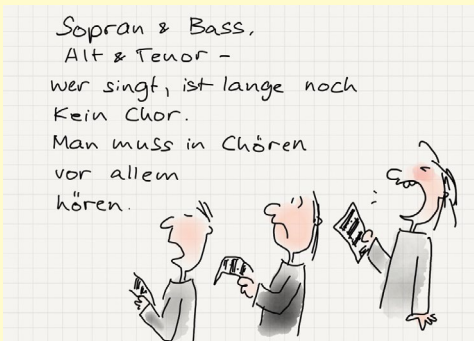 Sopran & Bass,
Alt & Tenor –
wer singt, ist lange noch
kein Chor.
Man muss in Chören
vor allem
hören.